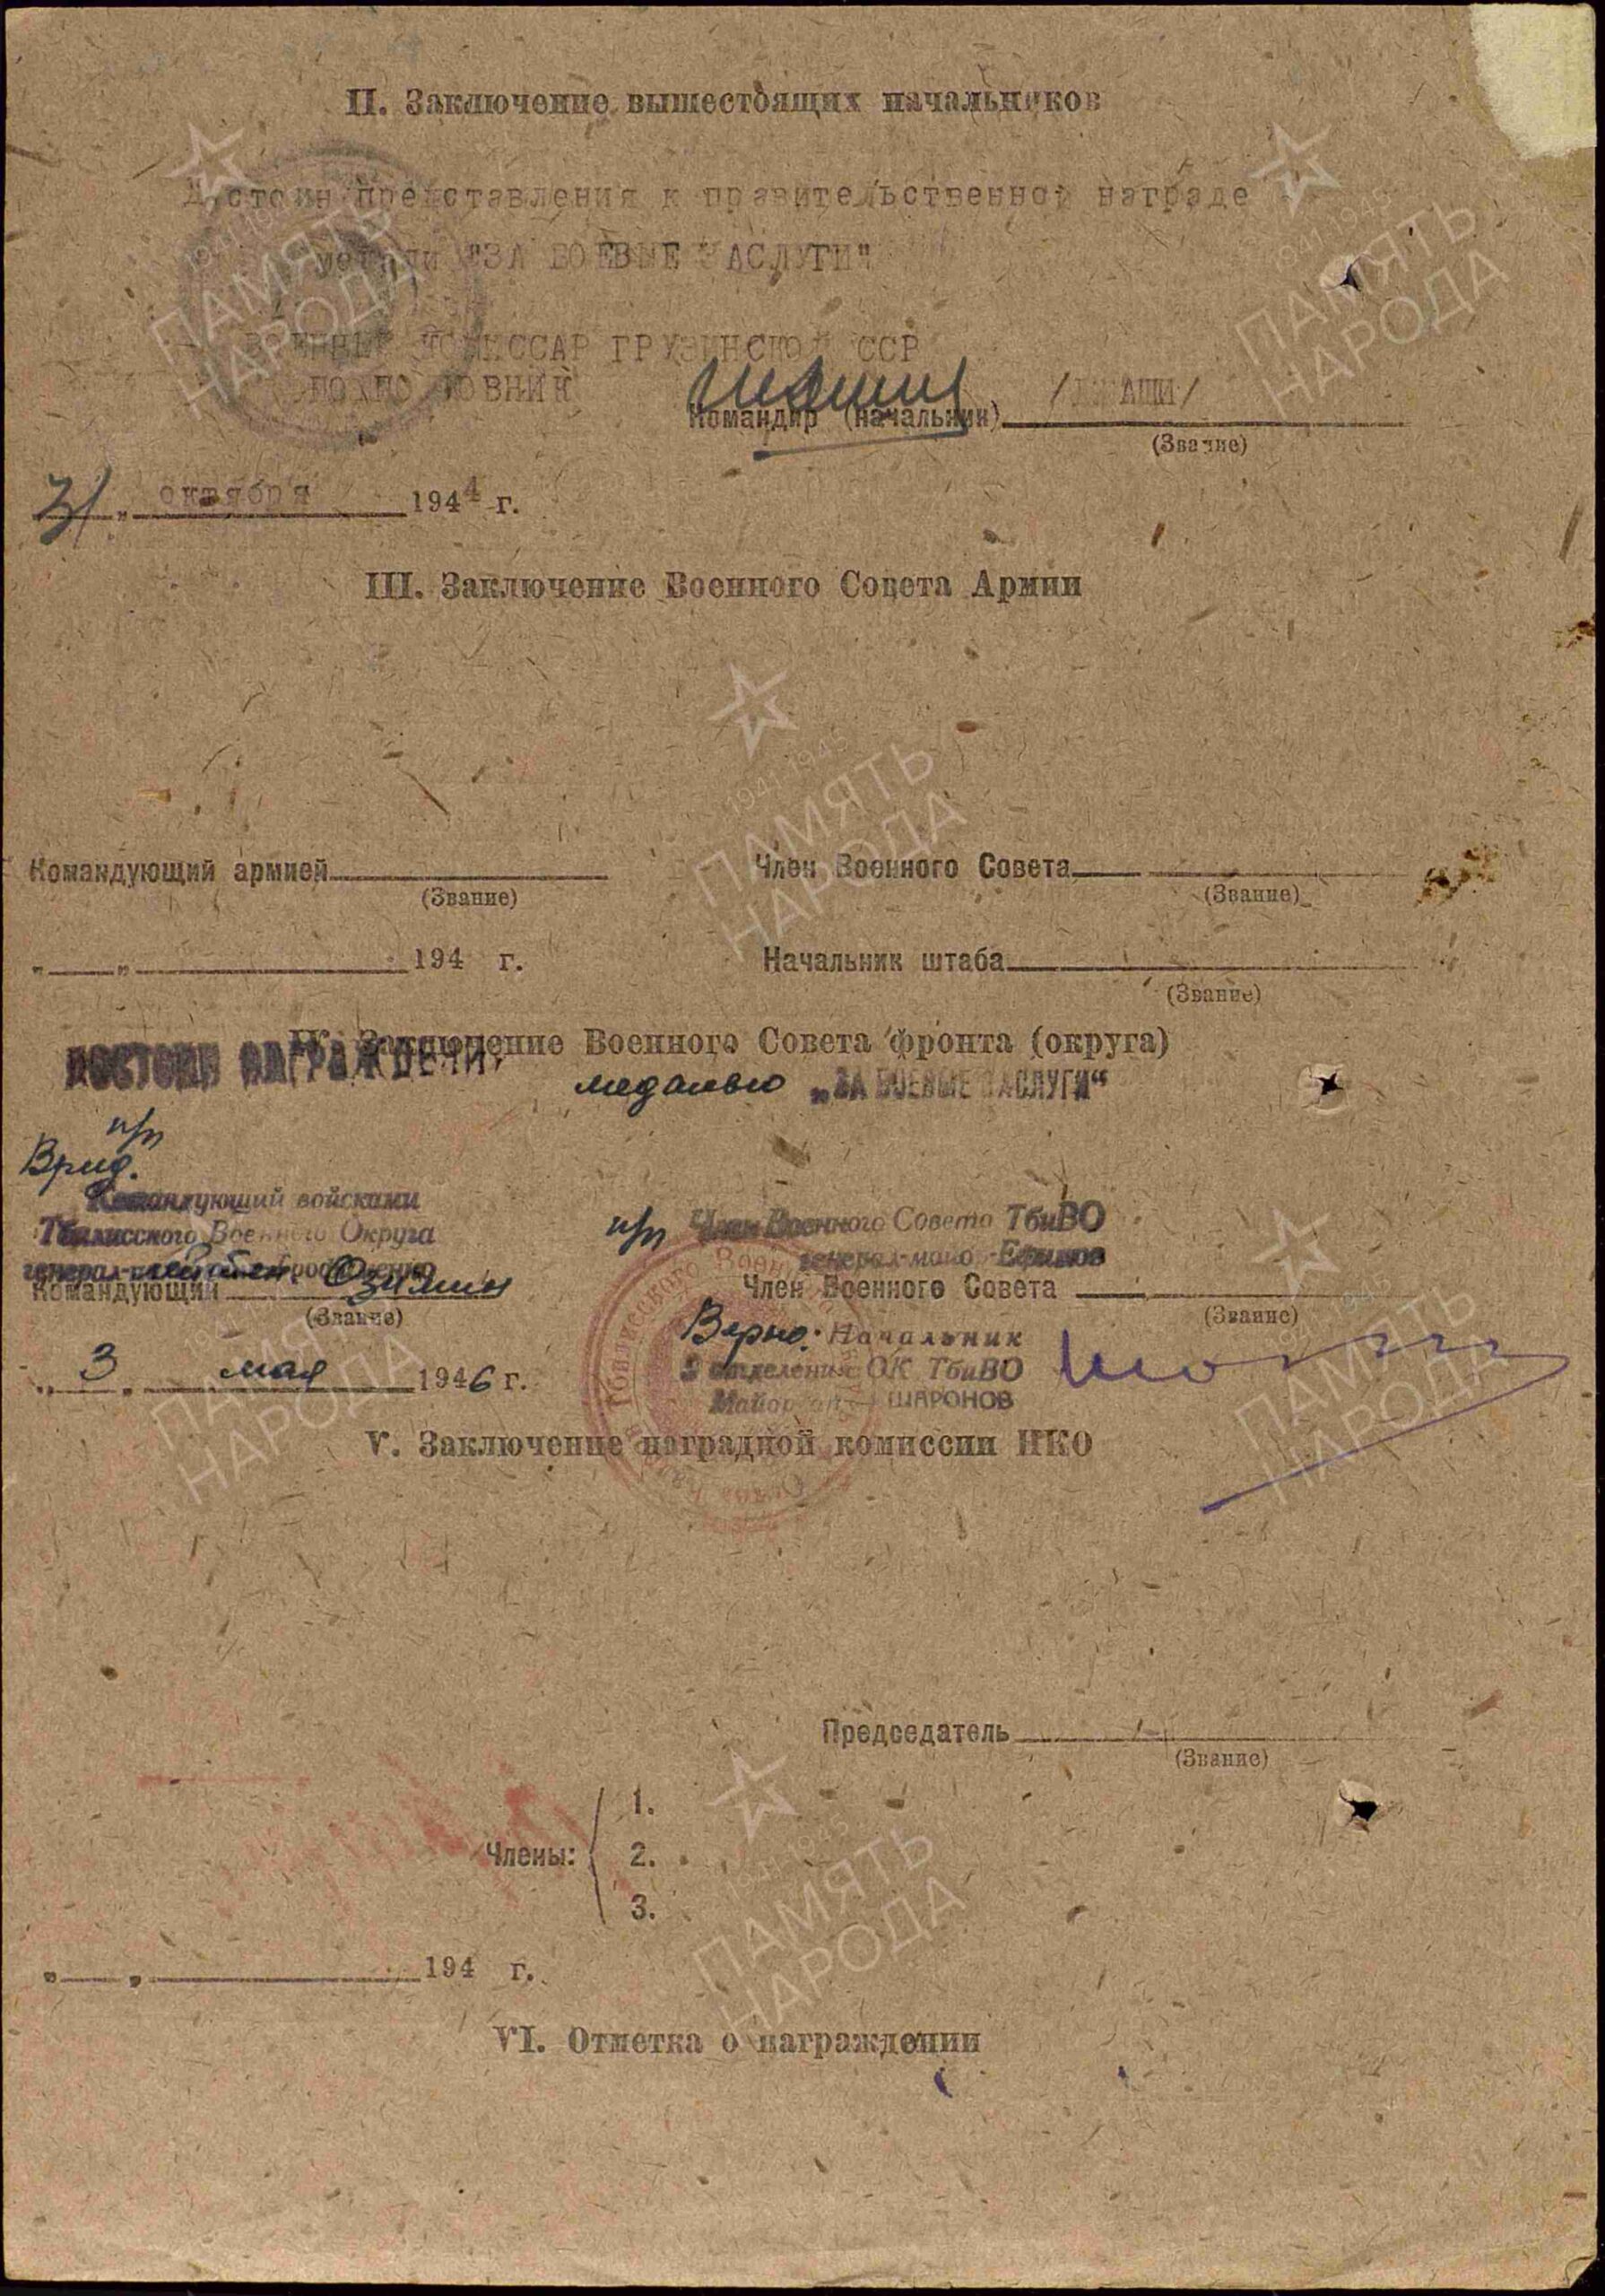 II. Заключение вышестоящих начальников
Достоин представления к правительственной награде
медали "ЗА БОЕВЫЕ ЗАСЛУГИ"
ВОЕННЫЙ КОМИССАР ГРУЗИНСКОЙ ССР
ПОДПОЛКОВНИК
Командир (начальник)
(Звание)
31 " октября 1944 г.
III. Заключение Военного Совета Армии
Командующий армией
(Звание)
Член Военного Совета
(Звание)
" " 194 г.
Начальник штаба
(Звание)
IV. Заключение Военного Совета фронта (округа)
ДОСТОИН НАГРАЖДЕНИЯ
медалью „ЗА БОЕВЫЕ ЗАСЛУГИ“
п/п
Врид.
Командующий войсками
Тбилисского Военного Округа
генерал-
Командующий Озимин
(Звание)
п/п Член Военного Совета ТбиВО
генерал-майор Ефимов
Член Военного Совета
(Звание)
Верно: Начальник
отделения ОК ТбиВО
Майор ШАРОНОВ
" 3 " мая 1946 г.
V. Заключение наградной комиссии НКО
Председатель
(Звание)
Члены:
1.
2.
3.
" " 194 г.
VI. Отметка о награждении
1941-1945
ПАМЯТЬ
НАРОДА